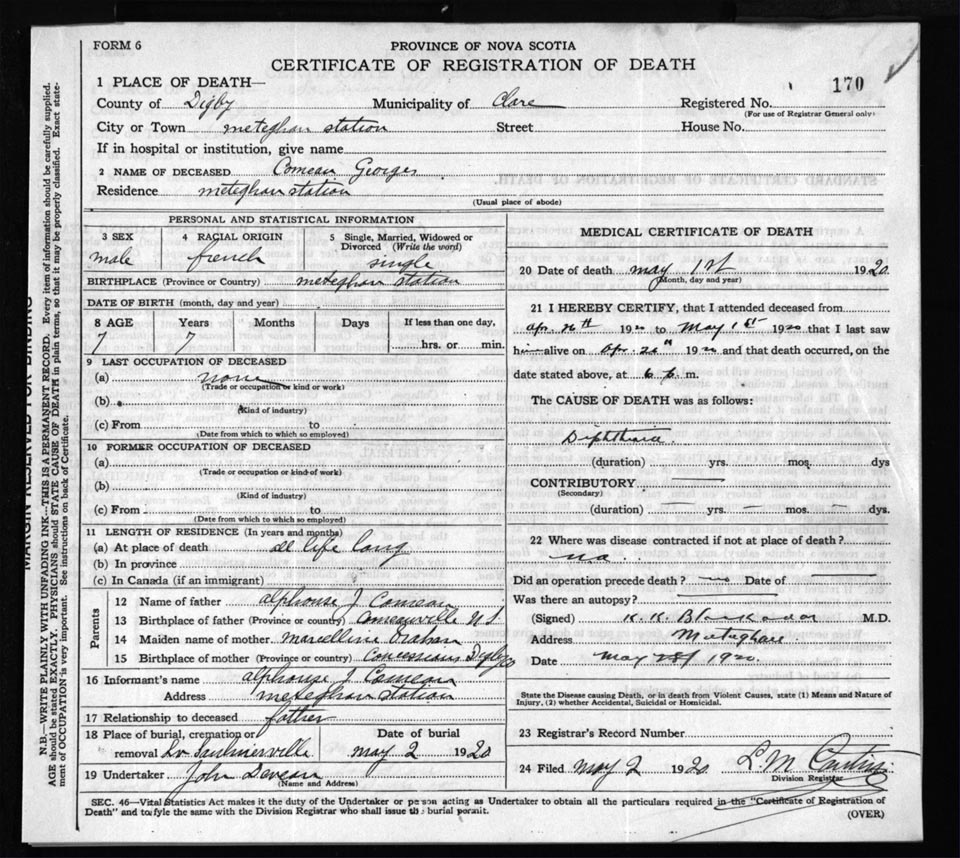 FORM 6
PROVINCE OF NOVA SCOTIA
CERTIFICATE OF REGISTRATION OF DEATH
170
1 PLACE OF DEATH—
County of Digby Municipality of Clare Registered No.
(For use of Registrar General only)
City or Town meteghan station Street House No.
If in hospital or institution, give name
2 NAME OF DECEASED Comeau Georges
Residence meteghan station
(Usual place of abode)
PERSONAL AND STATISTICAL INFORMATION
3 SEX 4 RACIAL ORIGIN 5 Single, Married, Widowed or Divorced (Write the word)
male french single
BIRTHPLACE (Province or Country) meteghan station
DATE OF BIRTH (month, day and year)
8 AGE Years Months Days If less than one day,
7 7 hrs. or min.
9 LAST OCCUPATION OF DECEASED
(a) none
(Trade or occupation or kind or work)
(b)
(Kind of industry)
(c) From to
(Date from which to which so employed)
10 FORMER OCCUPATION OF DECEASED
(a)
(Trade or occupation or kind of work)
(b)
(Kind of industry)
(c) From to
(Date from which to which so employed)
11 LENGTH OF RESIDENCE (In years and months)
(a) At place of death all life long
(b) In province
(c) In Canada (if an immigrant)
Parents
12 Name of father alphonse J. Comeau
13 Birthplace of father (Province or country) Comeauville N S
14 Maiden name of mother marcelline
15 Birthplace of mother (Province or country) Concessions Digby Co
16 Informant's name alphonse J. Comeau
Address meteghan station
17 Relationship to deceased father
18 Place of burial, cremation or Date of burial
removal Saulnierville may 2 1920
19 Undertaker John Deveau
(Name and Address)
MEDICAL CERTIFICATE OF DEATH
20 Date of death may 1st 1920
(Month, day and year)
21 I HEREBY CERTIFY, that I attended deceased from
apr. 1920 to May 1st 1920 that I last saw
him alive on apr. 1920 and that death occurred, on the
date stated above, at 6 p. m.
The CAUSE OF DEATH was as follows:
Diphtheria
(duration) yrs. mos. dys
CONTRIBUTORY
(Secondary)
(duration) — yrs. — mos. — dys.
22 Where was disease contracted if not at place of death?
Did an operation precede death? no Date of
Was there an autopsy?
(Signed) M.D.
Address Meteghan
Date may 1920
State the Disease causing Death, or in death from Violent Causes, state (1) Means and Nature of
Injury, (2) whether Accidental, Suicidal or Homicidal.
23 Registrar's Record Number
24 Filed may 2 1920 L. M.
Division Registrar
SEC. 46—Vital Statistics Act makes it the duty of the Undertaker or person acting as Undertaker to obtain all the particulars required in the "Certificate of Registration of
Death" and to file the same with the Division Registrar who shall issue the burial permit.
(OVER)
MARGIN RESERVED FOR BINDING
N.B.—WRITE PLAINLY WITH UNFADING INK—THIS IS A PERMANENT RECORD. Every item of information should be carefully supplied.
AGE should be stated EXACTLY. PHYSICIANS should STATE CAUSE OF DEATH in plain terms, so that it may be properly classified. Exact state-
ment of OCCUPATION is very important. See instructions on back of Certificate.